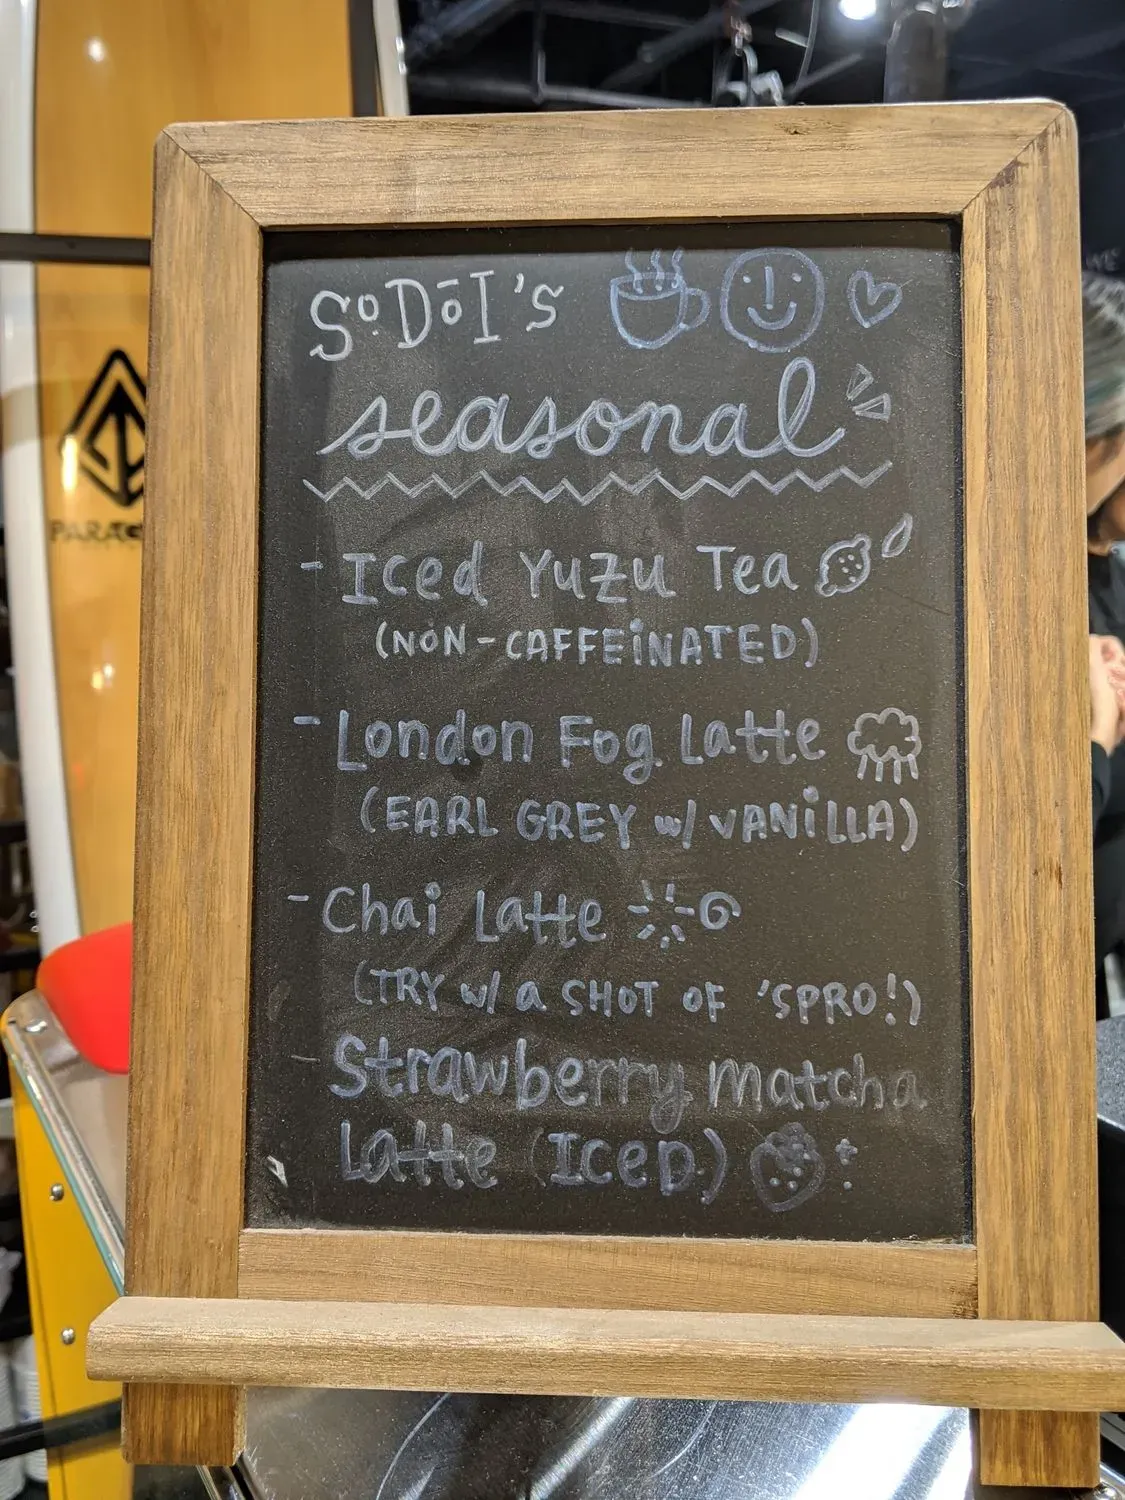 SoDōI's
seasonal
- Iced Yuzu Tea
(NON-CAFFEINATED)
- London Fog Latte
(EARL GREY w/ VANILLA)
- Chai Latte
(TRY w/ a SHOT OF 'SPRO!)
- Strawberry Matcha
Latte (ICED)